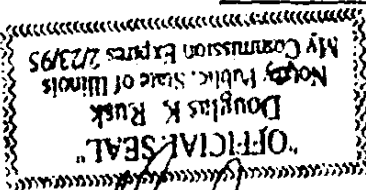 "OFFICIAL SEAL"
Douglas K. Rusk
Notary Public, State of Illinois
My Commission Expires 2/23/95